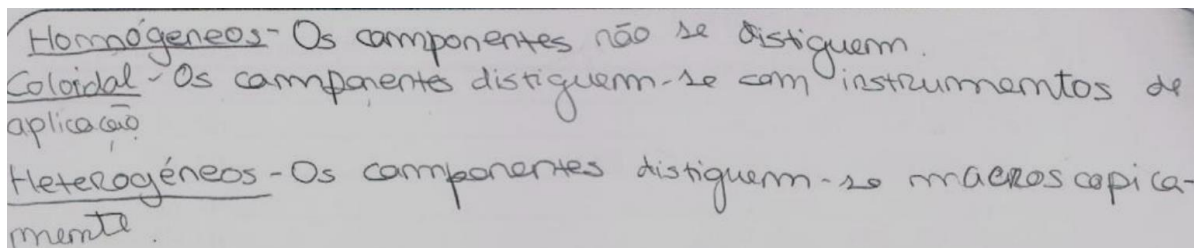 Homógeneos - Os componentes não se distiguem.
Coloidal - Os componentes distiguem-se com instrumentos de
aplicação
Heterogéneos - Os componentes distiguem-se macroscopica-
mente.